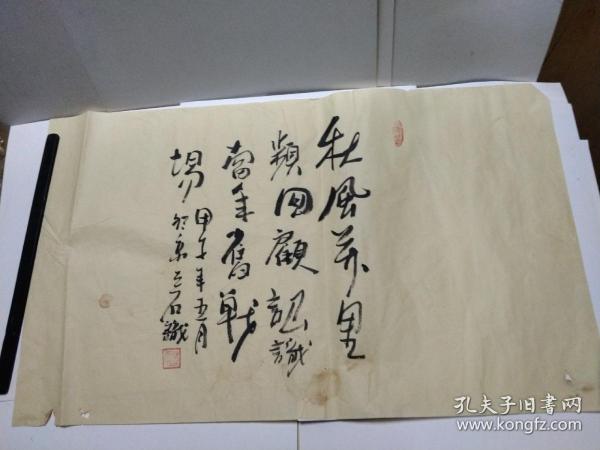 秋風萬里
頻回顧認識
當年舊戰
場
甲午年五月
石識
孔夫子旧书网
www.kongfz.com